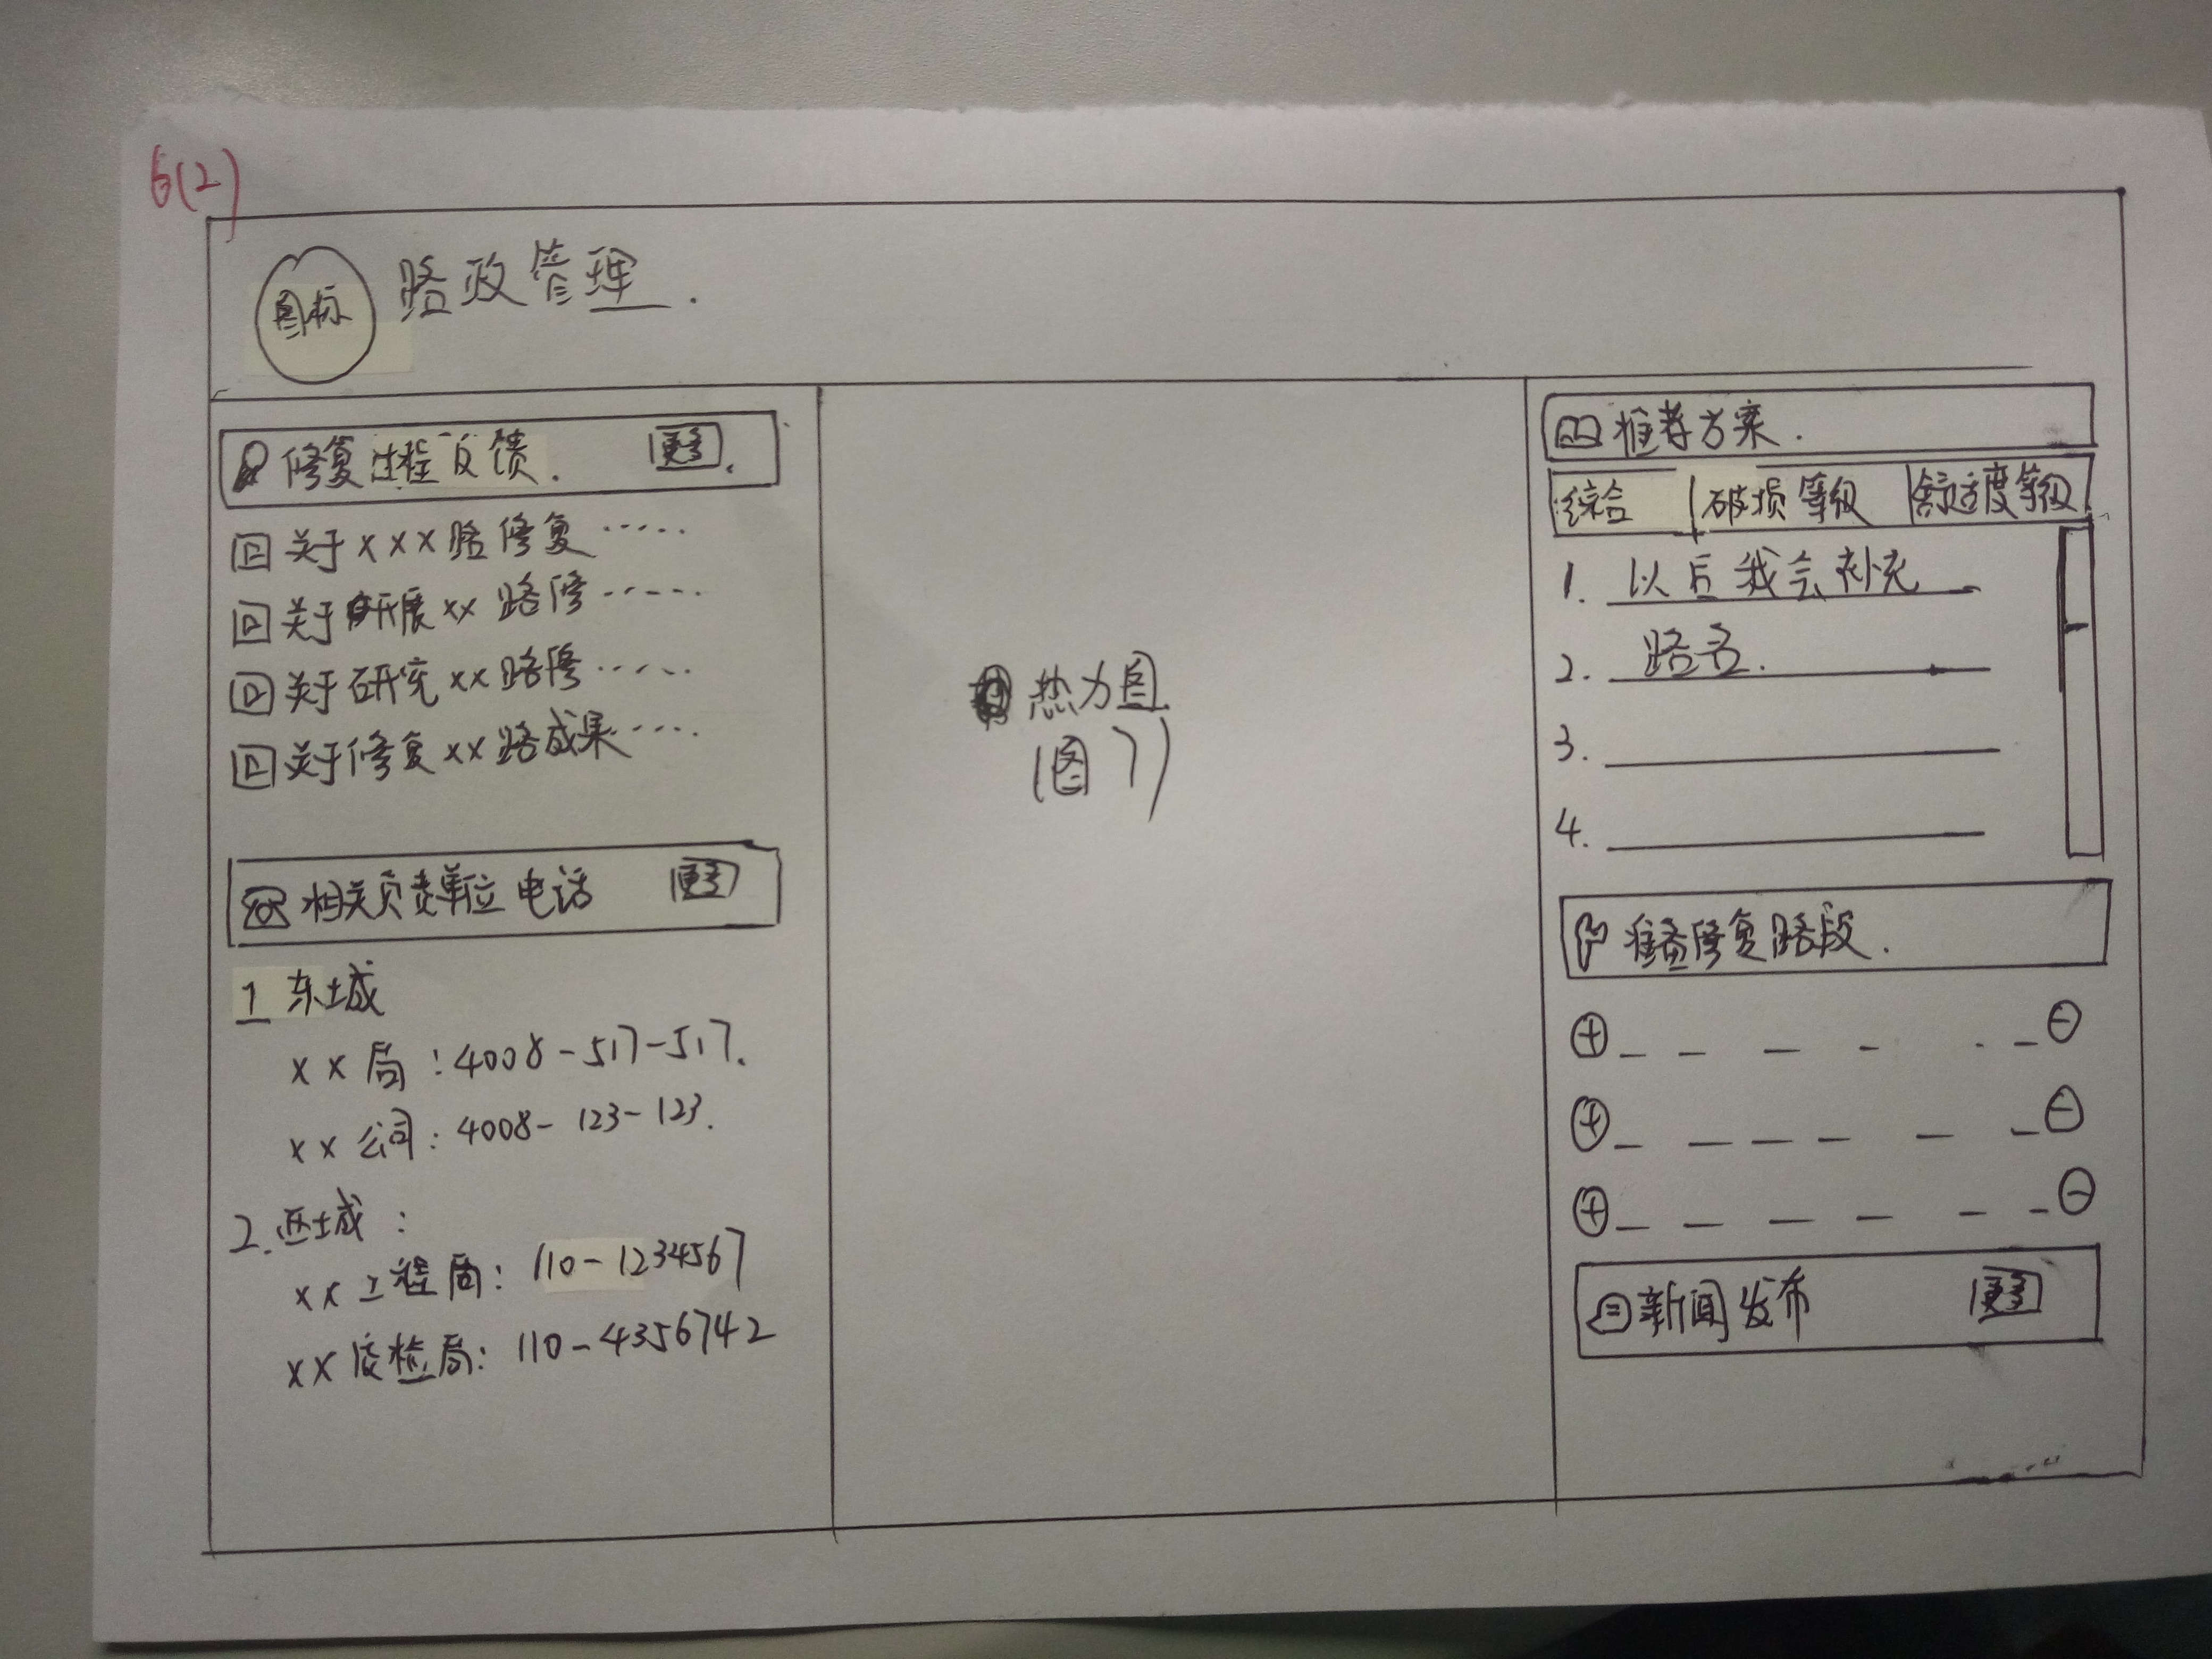 6(2)
图标 路政管理.
修复过程反馈. 更多.
关于×××路修复……
关于开展××路修……
关于研究××路修……
关于修复××路成果……
相关负责单位电话 更多
1 东城
××局:4008-517-517.
××公司:4008-123-123.
2.西城:
××工程局:110-1234567
××质检局:110-4356742
热力图
(图7)
推荐方案.
综合 破损等级 舒适度等级
1. 以后我会补充
2. 路名.
3.
4.
准备修复路段.
新闻发布 更多